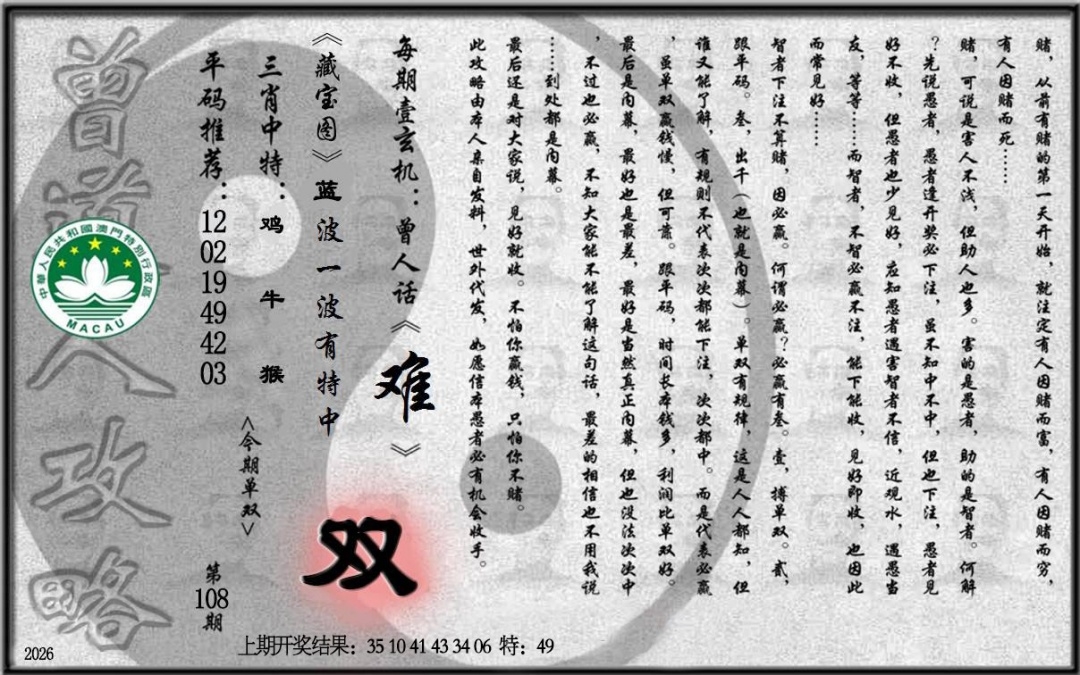 赌，从前有赌的第一天开始，就注定有人因赌而富，有人因赌而穷，
有人因赌而死……
赌，可说是害人不浅，但助人也多。害的是愚者，助的是智者。何解
？先说愚者，愚者逢开奖必下注，虽不知中不中，但也下注，愚者见
好不收，但愚者也少见好，应知愚者遇害智者不信，近观水，遇愚当
友，等等……而智者，不智必赢不注，能下能收，见好即收，也因此
而常见好……
智者下注不算赌，因必赢。何谓必赢？必赢有叁。壹，搏单双。贰，
跟平码。叁，出千（也就是内幕）。单双有规律，这是人人都知，但
谁又能了解，有规则不代表次次都能下注，次次都中。而是代表必赢
，虽单双赢钱慢，但可靠。跟平码，时间长本钱多，利润比单双好。
最后是内幕，最好也是最差，最好是当然真正内幕，但也没法次次中
，不过也必赢，不知大家能不能了解这句话，最差的相信也不用我说
……到处都是内幕。
最后还是对大家说，见好就收。不怕你赢钱，只怕你不赌。
此攻略由本人亲自发料，世外代发，如愿信本愚者必有机会收手。
每期壹玄机：曾人话《难》
《藏宝图》蓝波一波有特中
双
三肖中特：鸡 牛 猴
<今期单双>
平码推荐：12 02 19 49 42 03
第108期
曾道人攻略
中華人民共和國澳門特別行政區
MACAU
上期开奖结果：35 10 41 43 34 06 特：49
2026